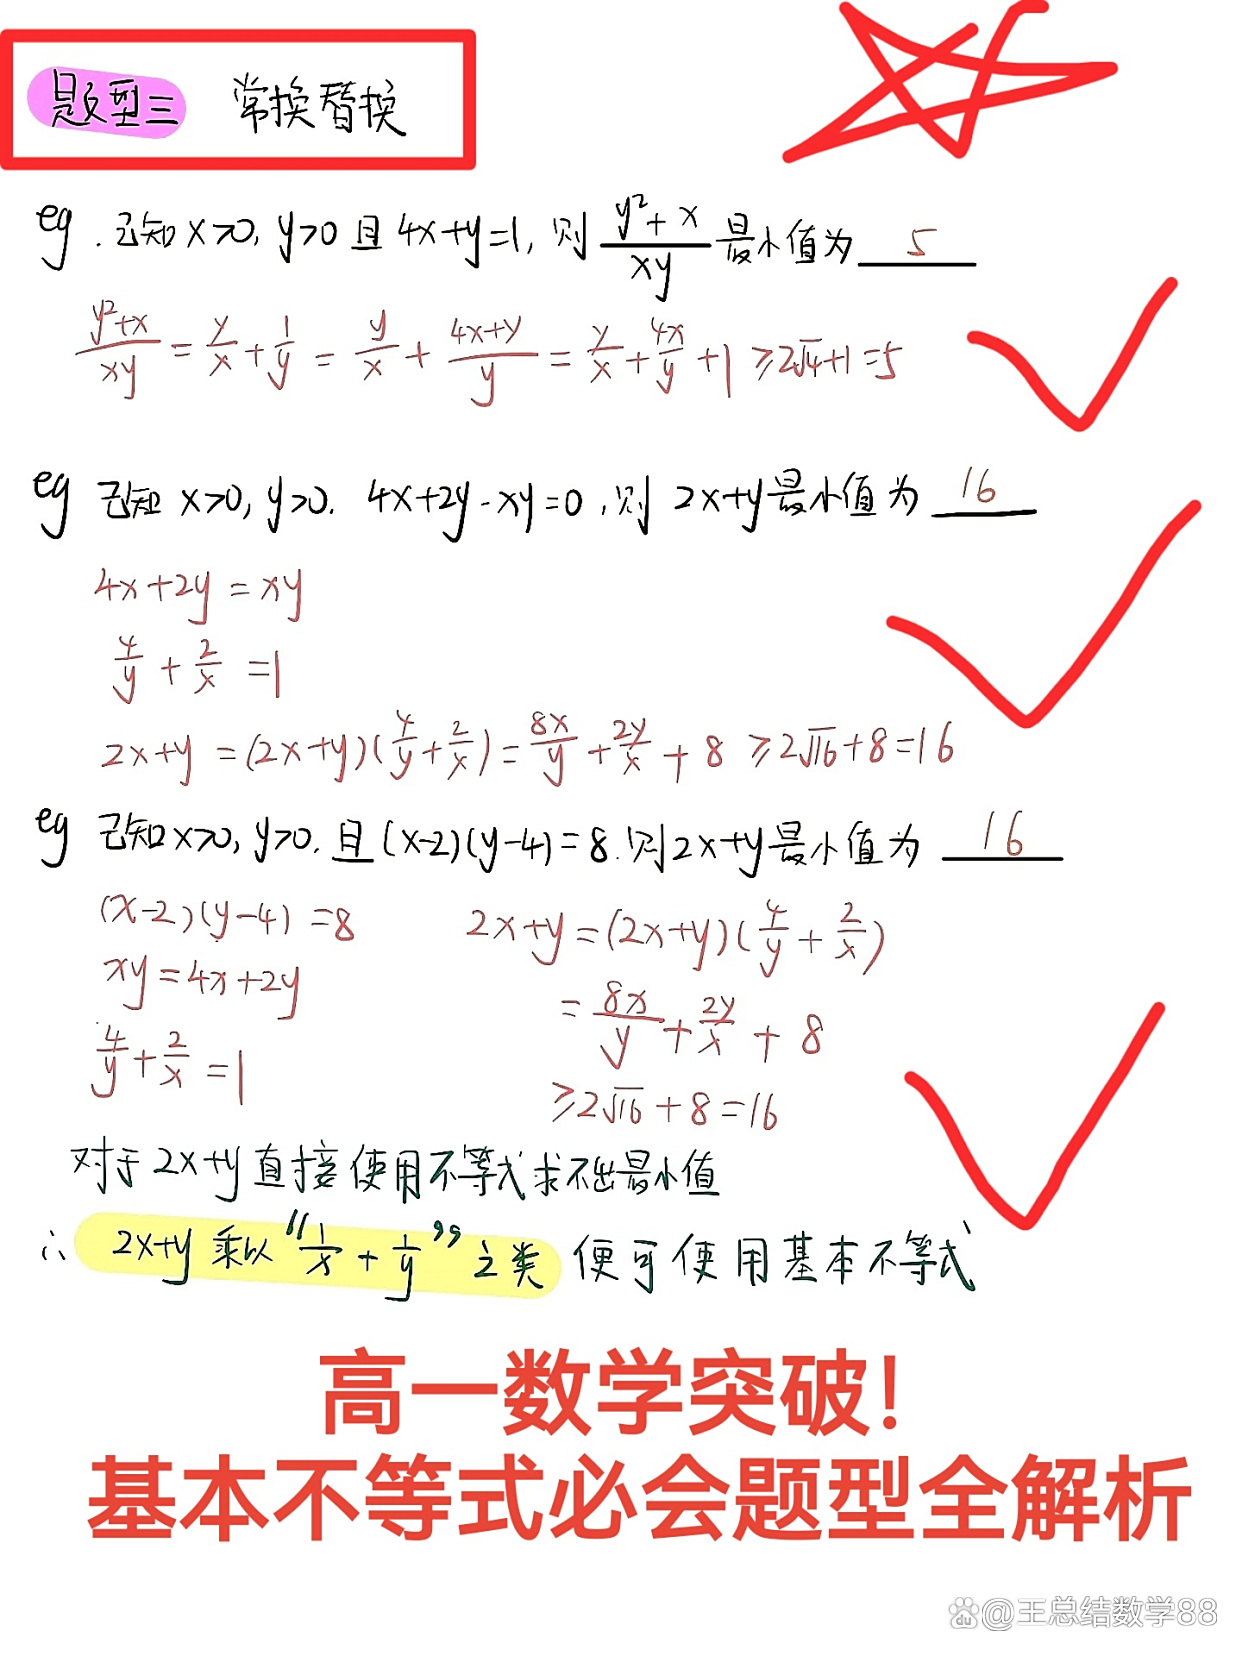 题型三 常换替换
eg. 已知x>0, y>0 且 4x+y=1, 则 (y²+x)/(xy) 最小值为 5
(y²+x)/(xy) = y/x + 1/y = y/x + (4x+y)/y = y/x + 4x/y + 1 ≥ 2√4+1=5
eg 已知 x>0, y>0. 4x+2y-xy=0, 则 2x+y最小值为 16
4x+2y=xy
4/y + 2/x =1
2x+y =(2x+y)(4/y + 2/x)= 8x/y + 2y/x + 8 ≥2√16+8=16
eg 已知x>0, y>0. 且(x-2)(y-4)=8.则2x+y最小值为 16
(x-2)(y-4)=8
xy=4x+2y
4/y + 2/x =1
2x+y=(2x+y)(4/y + 2/x)
= 8x/y + 2y/x + 8
≥2√16+8=16
对于2x+y直接使用不等式求不出最小值
∴ 2x+y 乘以“1/x + 1/y”之类 便可使用基本不等式
高一数学突破!
基本不等式必会题型全解析
du @王总结数学88